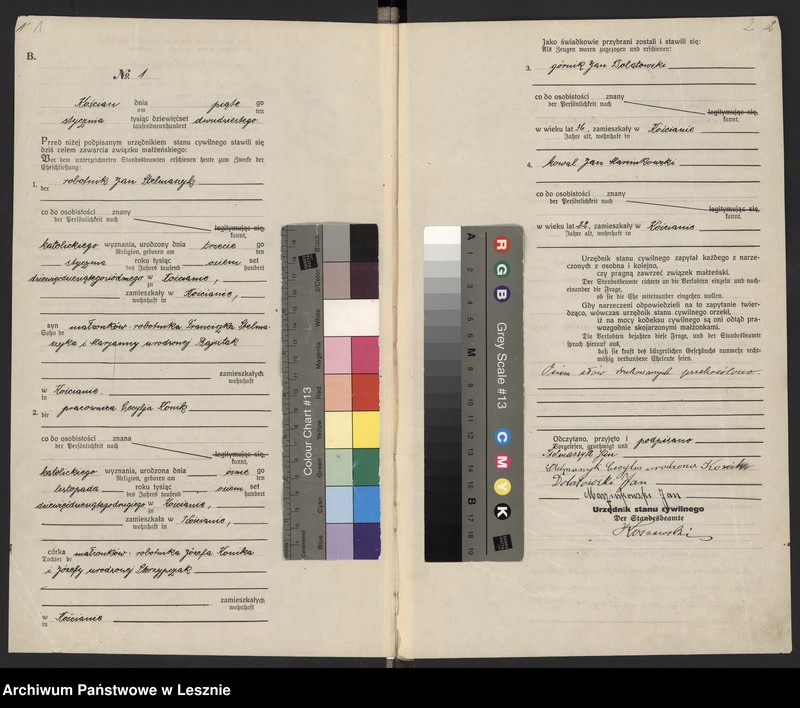 B.
№ 1
Kościan dnia piąte go
am ten
stycznia tysiąc dziewięćset dwudziestego
tausendneunhundert
Przed niżej podpisanym urzędnikiem stanu cywilnego stawili się
dziś celem zawarcia związku małżeńskiego:
Vor dem unterzeichneten Standesbeamten erschienen heute zum Zwecke der
Eheschließung:
1. robotnik Jan Stelmaszyk
der
co do osobistości znany
der Persönlichkeit nach
legitymując się,
kannt,
katolickiego wyznania, urodzony dnia trzecie go
Religion, geboren am ten
stycznia roku tysiąc osiem set
des Jahres tausend hundert
dziewięćdziesiątego siódmego w Kościanie,
zu
zamieszkały w Kościanie,
wohnhaft in
syn małżonków: robotnika Franciszka Stelma-
Sohn de
szyka i Maryanny urodzonej
zamieszkałych
wohnhaft
w Kościanie.
in
2. pracownica Cecylja
die
co do osobistości znana
der Persönlichkeit nach
legitymując się,
kannt,
katolickiego wyznania, urodzona dnia ósme go
Religion, geboren am ten
listopada roku tysiąc osiem set
des Jahres tausend hundert
dziewięćdziesiątego drugiego w Kościanie,
zu
zamieszkała w Kościanie,
wohnhaft in
córka małżonków: robotnika Józefa
Tochter de
i Józefy urodzonej Skrzypczak
zamieszkałych
wohnhaft
w Kościanie
in
2 2
Jako świadkowie przybrani zostali i stawili się:
Als Zeugen waren zugezogen und erschienen:
3. górnik Jan Dolatowski
co do osobistości znany
der Persönlichkeit nach
legitymując się,
kannt,
w wieku lat 36, zamieszkały w Kościanie
Jahre alt, wohnhaft in
4. kowal Jan
co do osobistości znany
der Persönlichkeit nach
legitymując się,
kannt,
w wieku lat 22, zamieszkały w Kościanie.
Jahre alt, wohnhaft in
Urzędnik stanu cywilnego zapytał każdego z narze-
czonych z osobna i kolejno,
czy pragną zawrzeć związek małżeński.
Der Standesbeamte richtete an die Verlobten einzeln und nach-
einander die Frage,
ob sie die Ehe miteinander eingehen wollen.
Gdy narzeczeni odpowiedzieli na to zapytanie twier-
dząco, wówczas urzędnik stanu cywilnego orzekł,
iż na mocy kodeksu cywilnego są oni odtąd pra-
wozgodnie skojarzonymi małżonkami.
Die Verlobten bejahten diese Frage, und der Standesbeamte
sprach hierauf aus,
daß sie kraft des bürgerlichen Gesetzbuchs nunmehr recht-
mäßig verbundene Eheleute seien.
Osiem słów drukowanych przekreślono.
Odczytano, przyjęto i podpisano
Vorgelesen, genehmigt und
Stelmaszyk Jan
Stelmaszyk Cecylia urodzona
Dolatowski Jan
Jan
Urzędnik stanu cywilnego
Der Standesbeamte
Colour Chart #13
Blue
Cyan
Green
Yellow
Red
Magenta
White
3/Colour
Black
Centimetres
Grey Scale #13
R
G
B
C
M
Y
K
A 1 2 3 4 5 6 M 8 9 10 11 12 13 14 15 B 17 18 19
Archiwum Państwowe w Lesznie